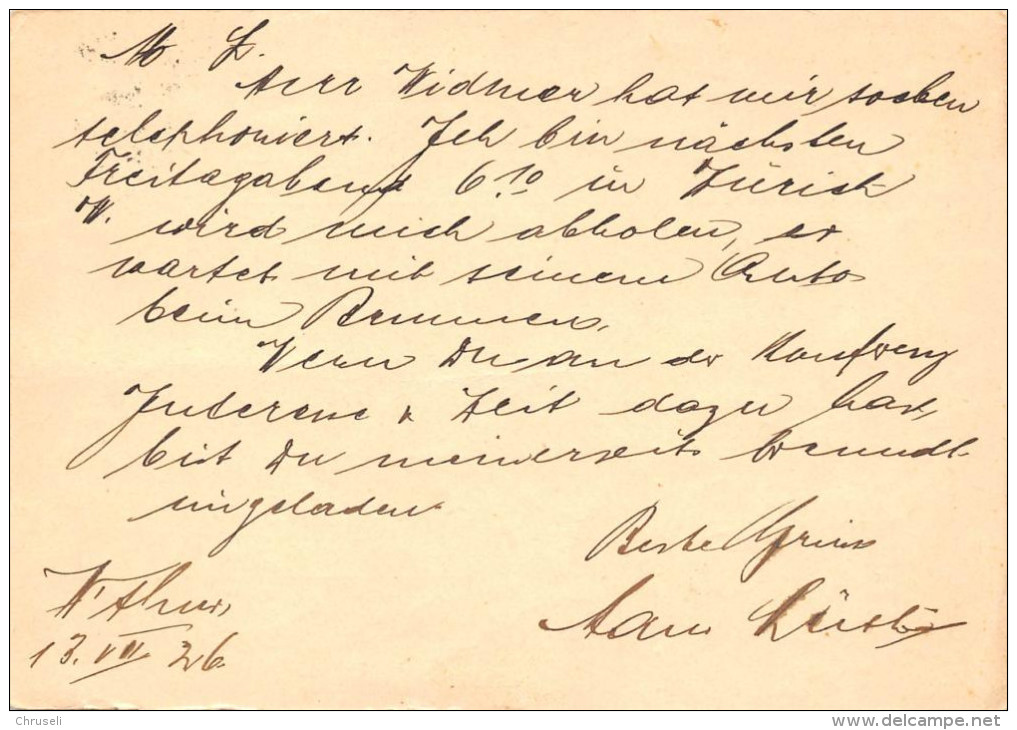 M. L.
Herr Widmer hat mir soeben
telephoniert. Ich bin nächsten
Freitagabend 6 10 in Zürich
W. wird mich abholen, er
wartet mit seinem Auto
beim Brunnen.
Wenn Du an der
Interesse & Zeit dazu hast,
bist Du meinerseits freundl.
eingeladen.
Beste Grüsse
Hans
W'thur,
13. VII 26.
Chruseli
www.delcampe.net